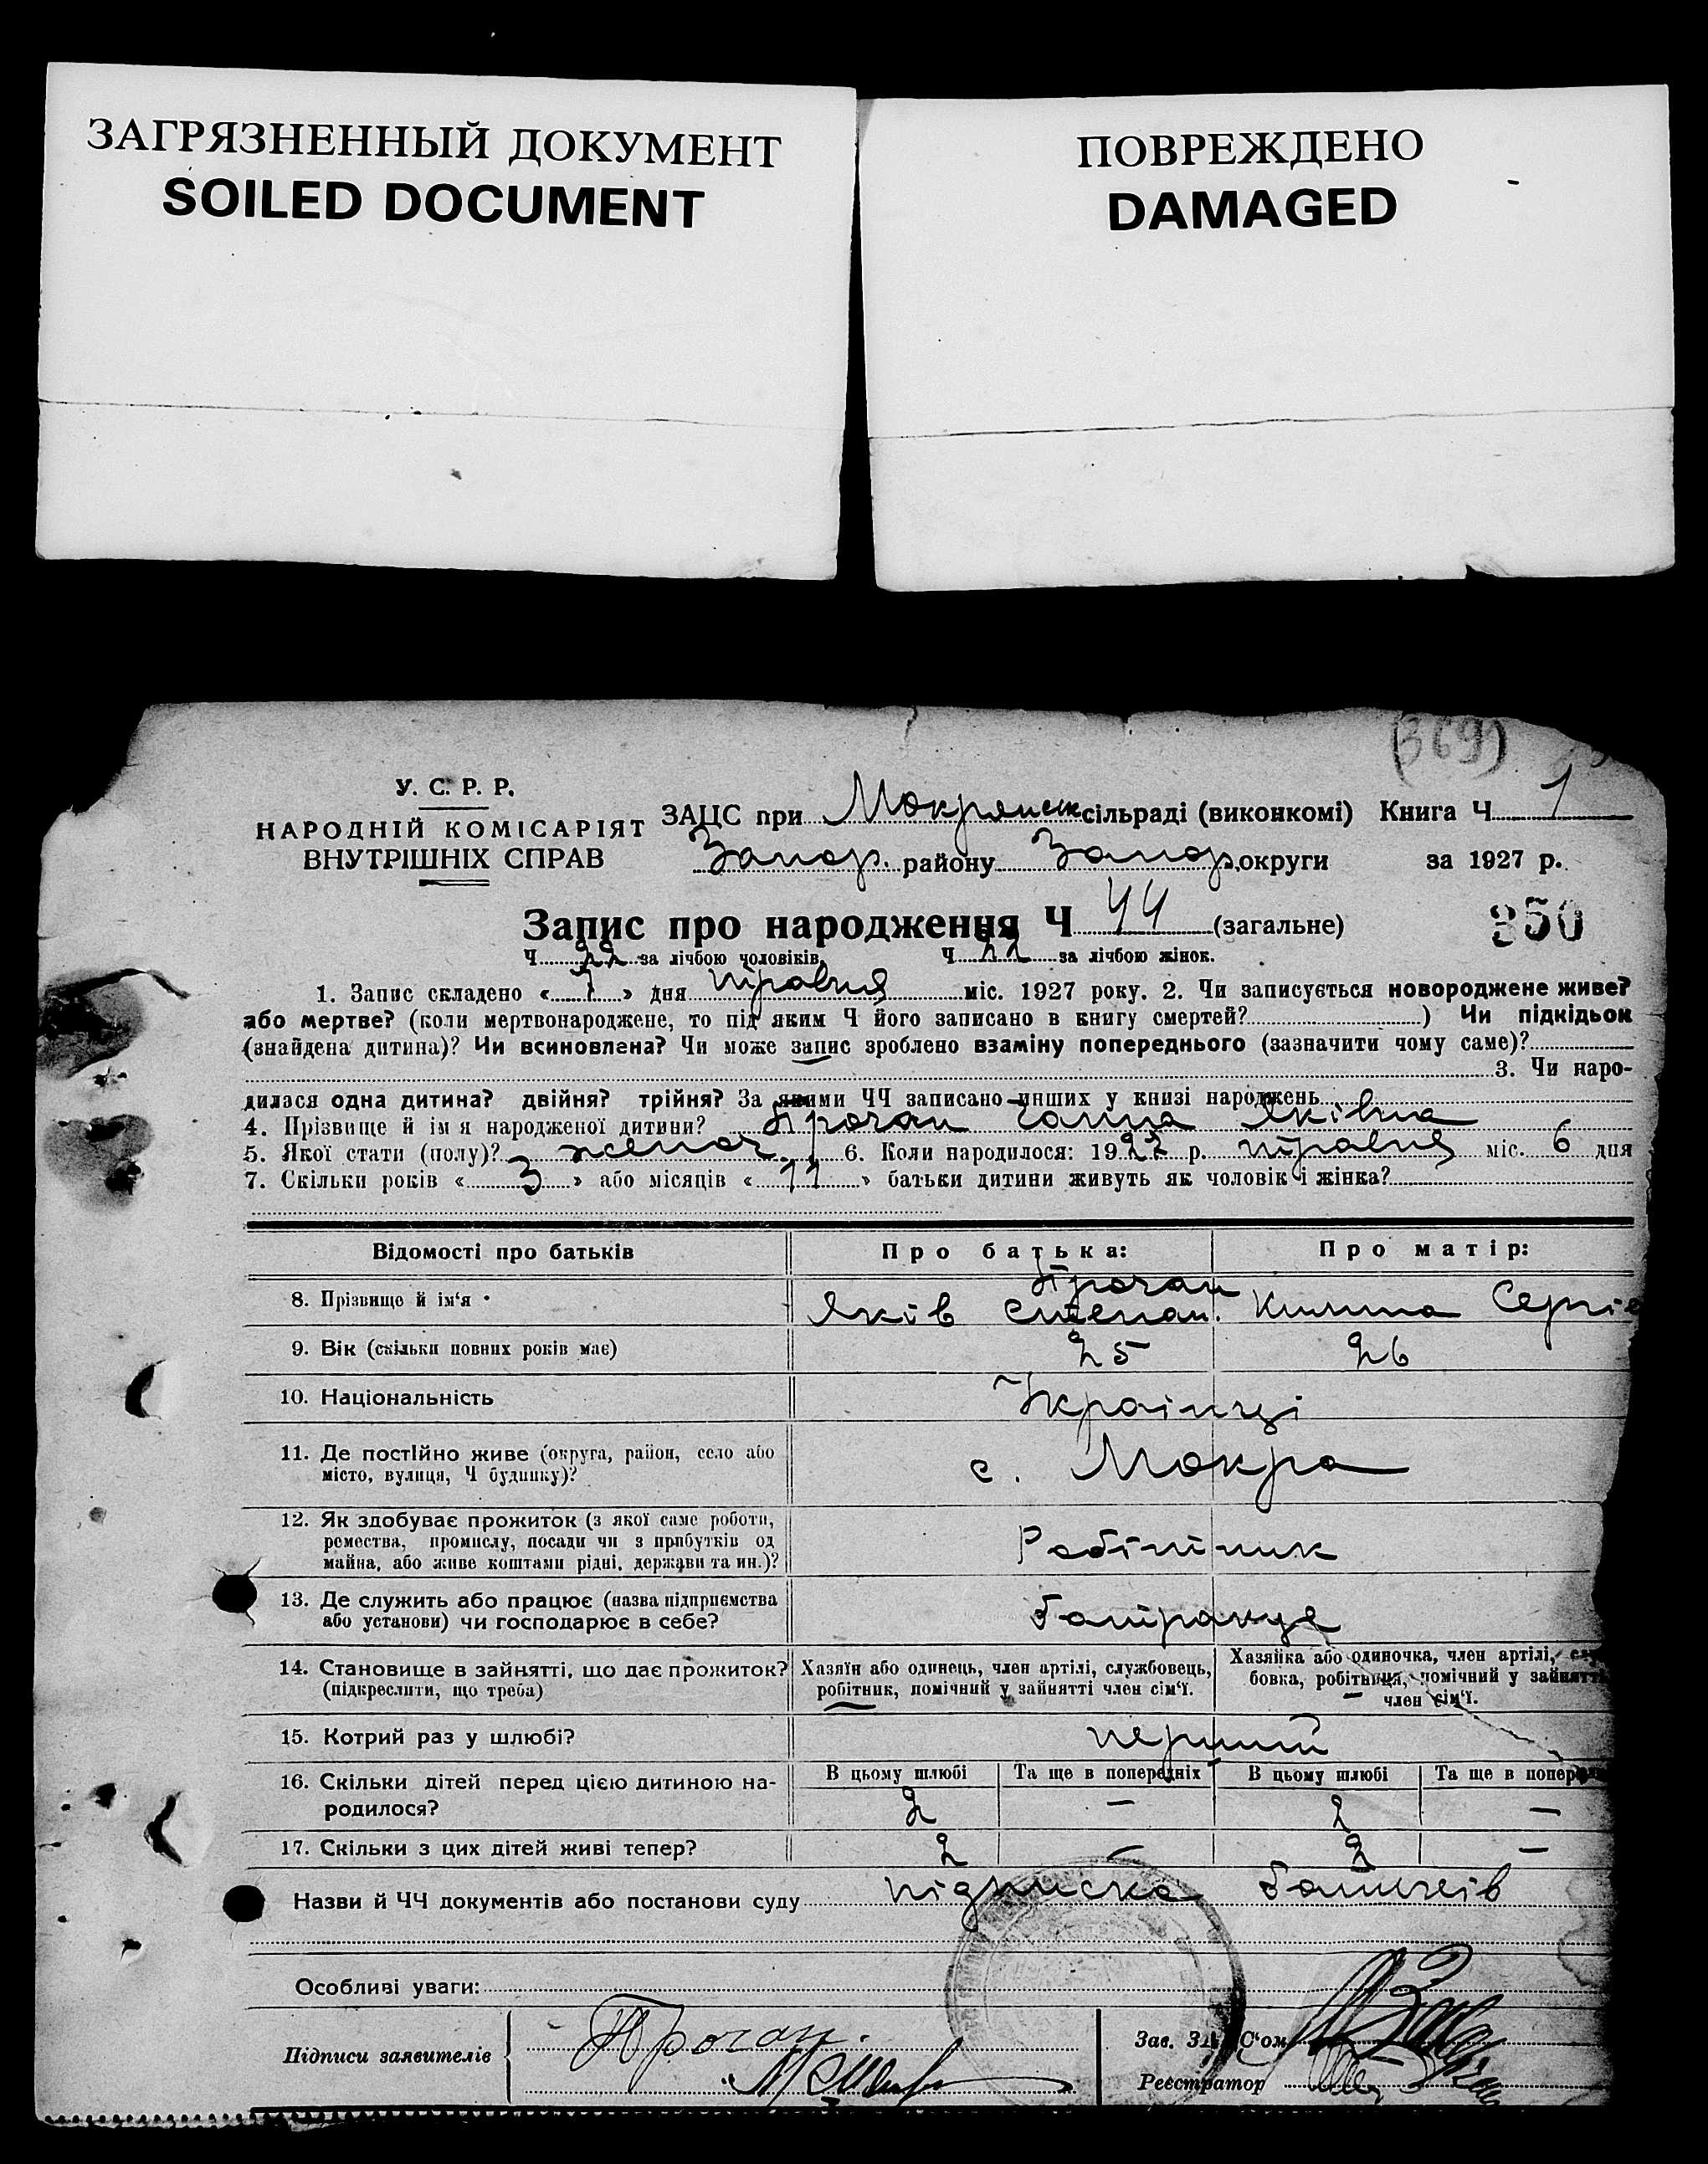 ЗАГРЯЗНЕННЫЙ ДОКУМЕНТ
SOILED DOCUMENT
ПОВРЕЖДЕНО
DAMAGED
(369)
У. С. Р. Р.
НАРОДНІЙ КОМІСАРІЯТ
ВНУТРІШНІХ СПРАВ
ЗАЦС при Мокрянськ сільраді (виконкомі) Книга Ч 1
Запор. району Запор. округи за 1927 р.
Запис про народження Ч 44 (загальне) 350
Ч 22 за лічбою чоловіків, Ч 22 за лічбою жінок.
1. Запис складено « 7 » дня травня міс. 1927 року. 2. Чи записується новороджене живе?
або мертве? (коли мертвонароджене, то під яким Ч його записано в книгу смертей? ) Чи підкідьок
(знайдена дитина)? Чи всиновлена? Чи може запис зроблено взаміну попереднього (зазначити чому саме)?
3. Чи наро-
дилася одна дитина? двійня? трійня? За якими ЧЧ записано инших у книзі народжень
4. Прізвище й ім'я народженої дитини? Прочан Ганна Яківна
5. Якої стати (полу)? жіноч. 6. Коли народилося: 1927 р. травня міс. 6 дня
7. Скільки років « 3 » або місяців « 11 » батьки дитини живуть як чоловік і жінка?
Відомості про батьків Про батька: Про матір:
8. Прізвище й ім'я Прочан
Яків Степан. Килина Сергіє
9. Вік (скільки повних років має) 25 26
10. Національність Українці
11. Де постійно живе (округа, район, село або
місто, вулиця, Ч будинку)? с. Мокра
12. Як здобуває прожиток (з якої саме роботи,
ремества, промислу, посади чи з прибутків од
майна, або живе коштами рідні, держави та ин.)? Робітник
13. Де служить або працює (назва підприємства
або установи) чи господарює в себе? батракує
14. Становище в зайнятті, що дає прожиток?
(підкреслити, що треба)
Хазяїн або одинець, член артілі, службовець,
робітник, помічний у зайнятті член сім'ї.
Хазяйка або одиночка, член артілі, слу
бовка, робітниця, помічний у зайнятті
член сім'ї.
15. Котрий раз у шлюбі? перший
16. Скільки дітей перед цією дитиною на-
родилося?
В цьому шлюбі Та ще в попередніх В цьому шлюбі Та ще в попер
2 — 2 —
17. Скільки з цих дітей живі тепер? 2 — 2 —
Назви й ЧЧ документів або постанови суду підписка батьків
Особливі уваги:
Підписи заявителів Прочан.
Зав. ЗАЦС'ом
Реєстратор